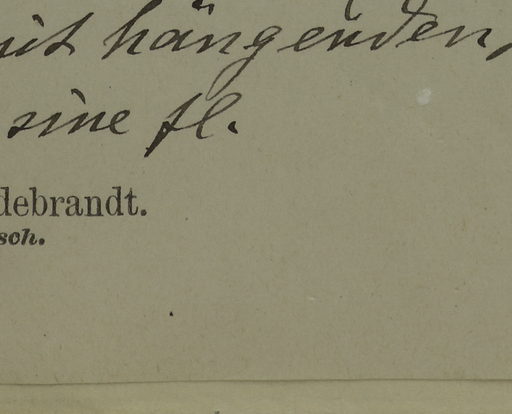 mit hängenden,
sine fl.
debrandt.
sch.